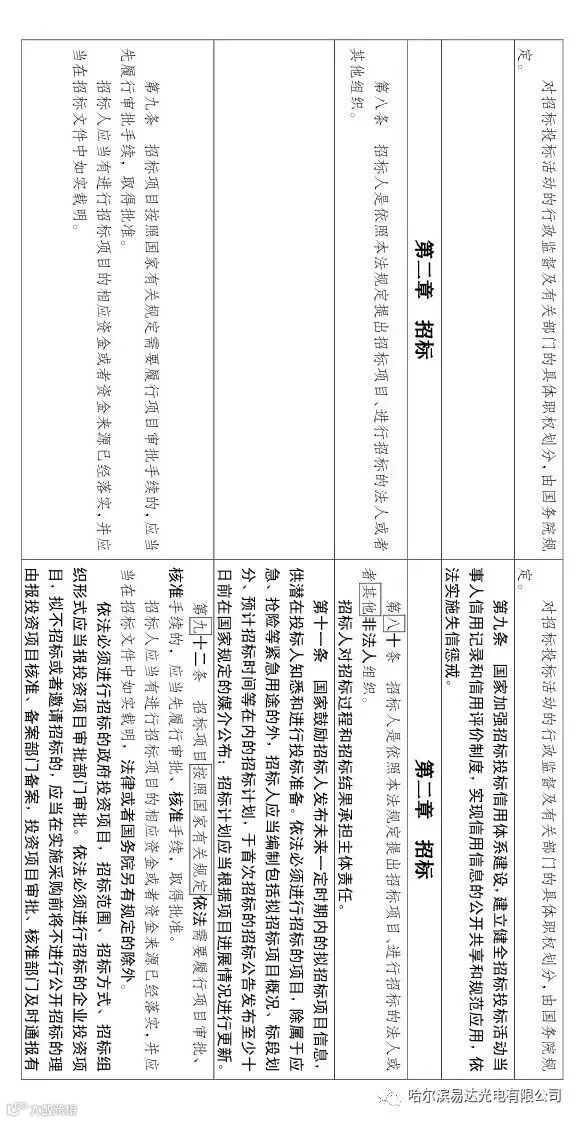 对招标投标活动的行政监督及有关部门的具体职权划分，由国务院规
定。
对招标投标活动的行政监督及有关部门的具体职权划分，由国务院规
定。
第九条 国家加强招标投标信用体系建设，建立健全招标投标活动当
事人信用记录和信用评价制度，实现信用信息的公开共享和规范应用，依
法实施失信惩戒。
第二章 招标
第二章 招标
第八条 招标人是依照本法规定提出招标项目、进行招标的法人或者
其他组织。
第八十条 招标人是依照本法规定提出招标项目、进行招标的法人或
者其他非法人组织。
招标人对招标过程和招标结果承担主体责任。
第十一条 国家鼓励招标人发布未来一定时期内的拟招标项目信息，
供潜在投标人知悉和进行投标准备。依法必须进行招标的项目，除属于应
急、抢险等紧急用途的外，招标人应当编制包括拟招标项目概况、标段划
分、预计招标时间等在内的招标计划，于首次招标的招标公告发布至少十
日前在国家规定的媒介公布；招标计划应当根据项目进展情况进行更新。
第九条 招标项目按照国家有关规定需要履行项目审批手续的，应当
先履行审批手续，取得批准。
招标人应当有进行招标项目的相应资金或者资金来源已经落实，并应
当在招标文件中如实载明。
第九十二条 招标项目按照国家有关规定依法需要履行项目审批、
核准手续的，应当先履行审批、核准手续，取得批准。
招标人应当有进行招标项目的相应资金或者资金来源已经落实，并应
当在招标文件中如实载明，法律或者国务院另有规定的除外。
依法必须进行招标的政府投资项目，招标范围、招标方式、招标组
织形式应当报投资项目审批部门审批。依法必须进行招标的企业投资项
目，拟不招标或者邀请招标的，应当在实施采购前将不进行公开招标的理
由报投资项目核准、备案部门备案，投资项目审批、核准部门及时通报有
哈尔滨易达光电有限公司